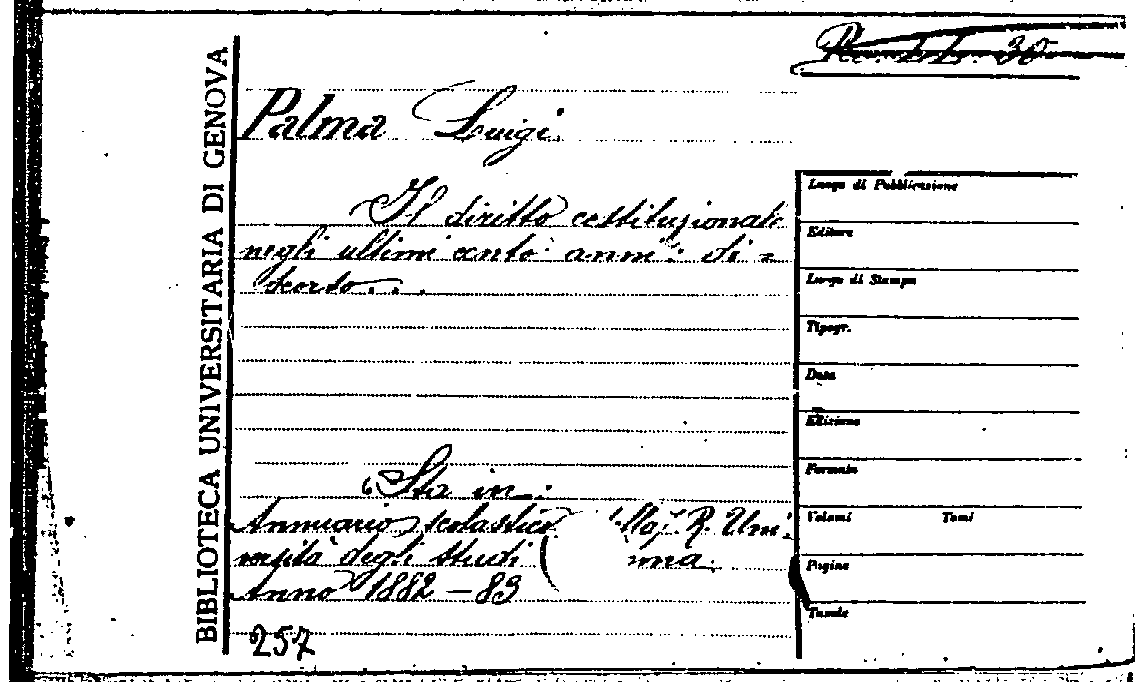 BIBLIOTECA UNIVERSITARIA DI GENOVA
30
Palma Luigi
Il diritto costituzionale
negli ultimi cento anni: di=
scorso...
Sta in:
Annuario scolastico della R. Uni
versità degli studi
Anno 1882-83
257
Luogo di Pubblicazione
Editore
Luogo di Stampa
Tipogr.
Data
Edizione
Formato
Volumi Tomi
Pagine
Tavole